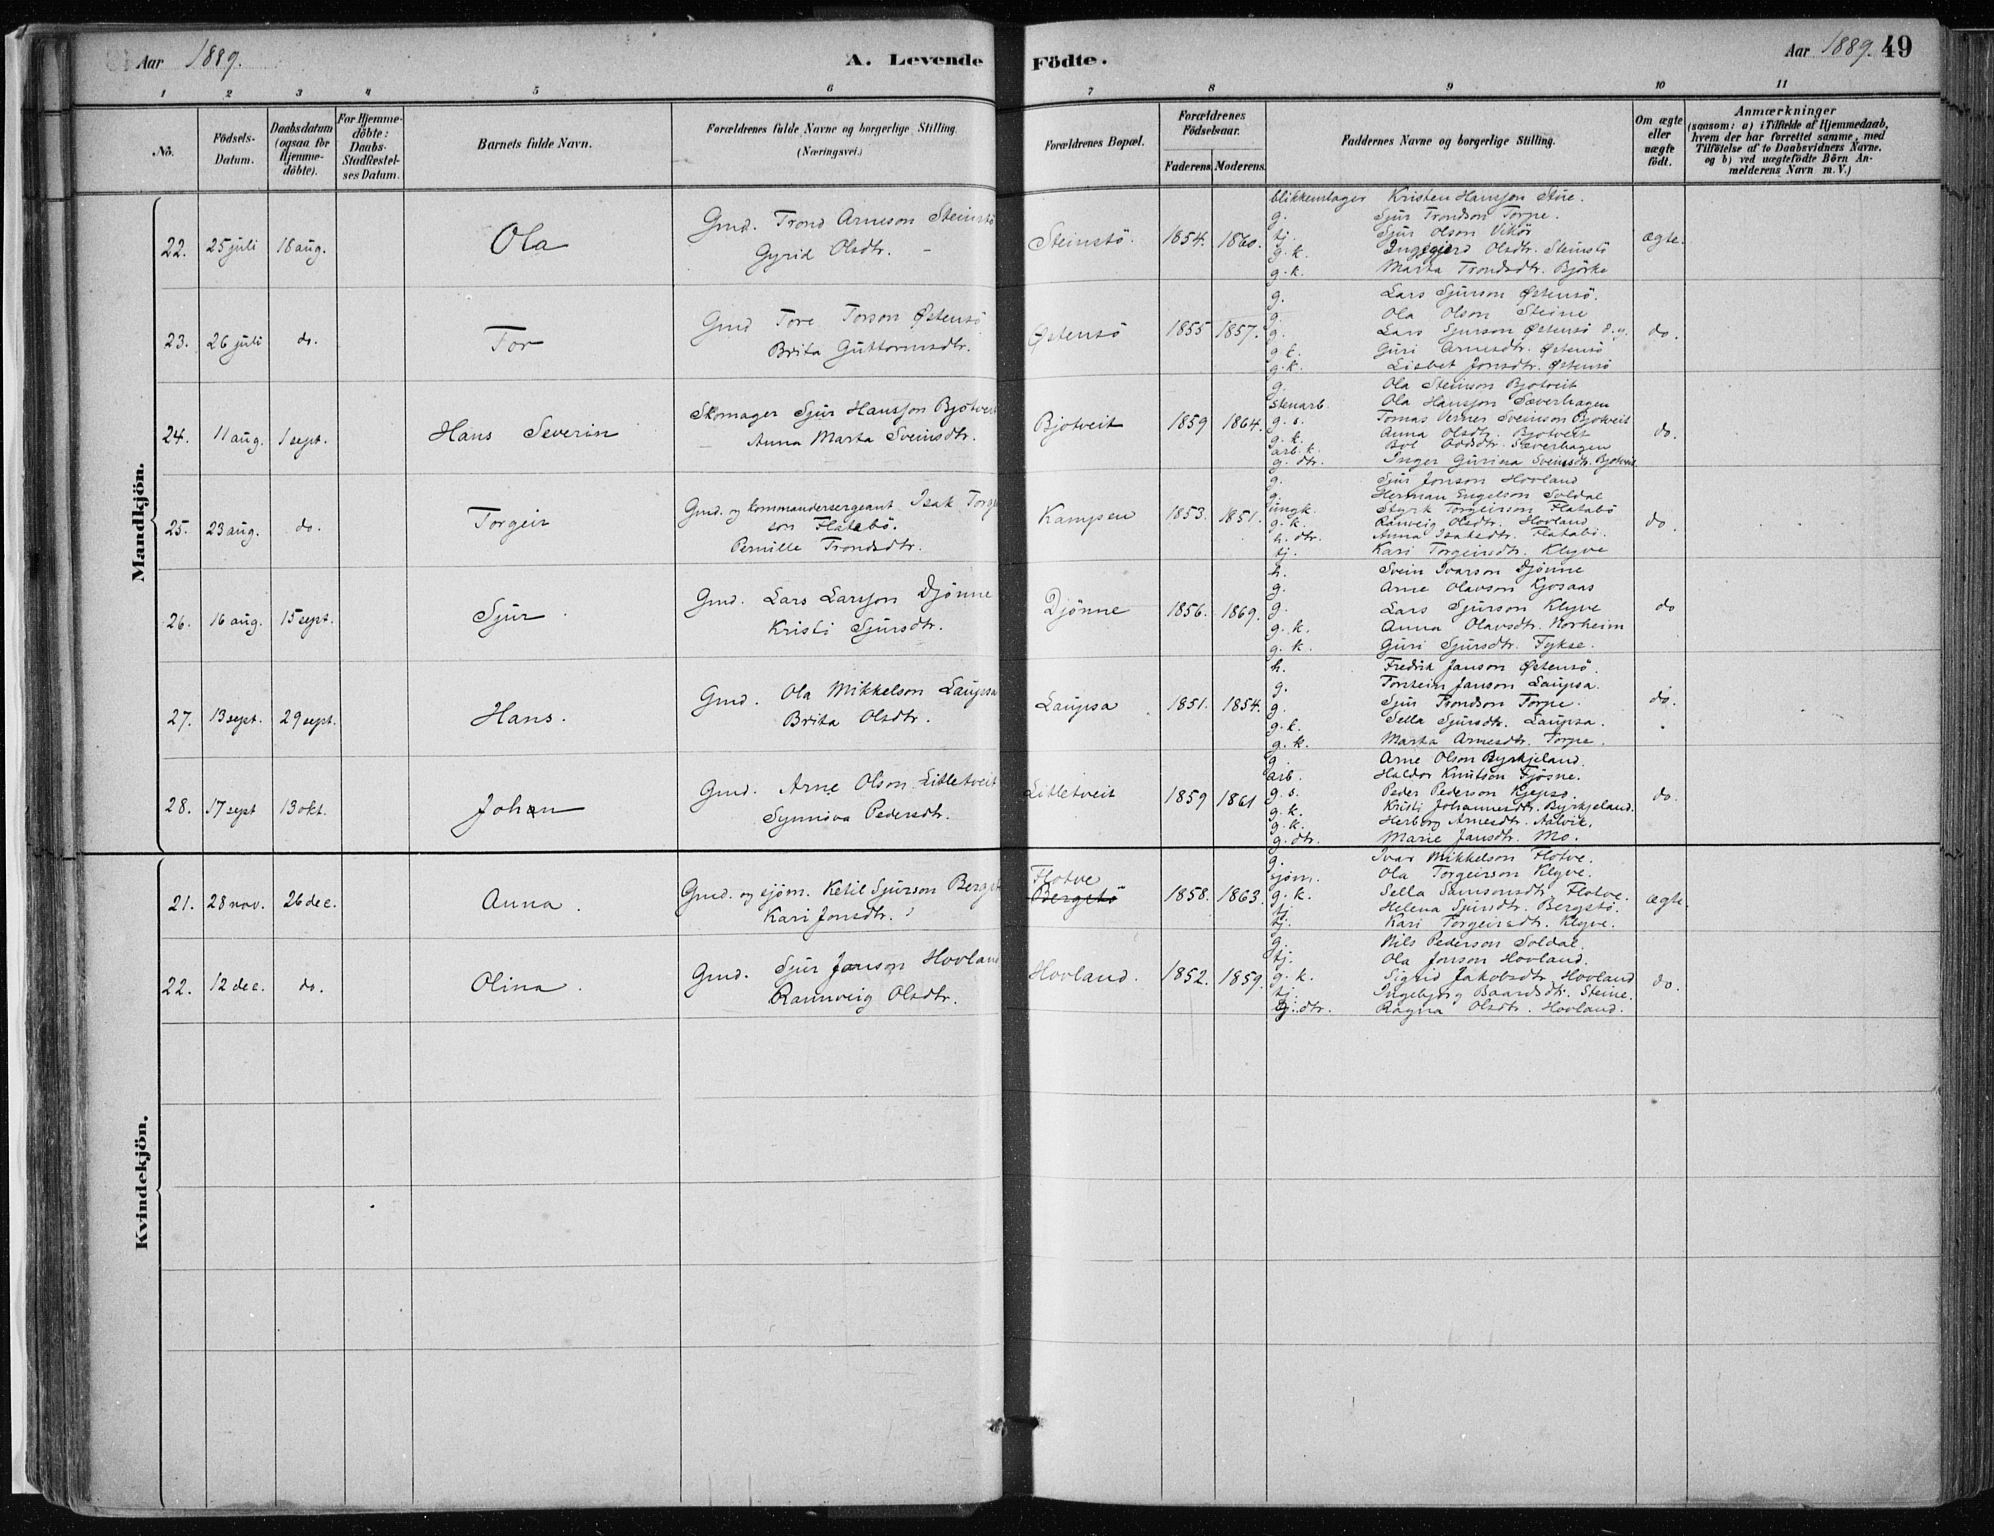 Aar 1889.
A. Levende Födte.
Aar 1889. 49
1 2 3 4 5 6 7 8 9 10 11
No.
Födsels-Datum.
Daabsdatum (ogsaa for Hjemmedöbte).
For Hjemmedöbte: Daabs-Stadfæstelses Datum.
Barnets fulde Navn.
Forældrenes fulde Navne og borgerlige Stilling. (Næringsvei.)
Forældrenes Bopæl.
Forældrenes Födselsaar.
Faderens. Moderens.
Faddernes Navne og borgerlige Stilling.
Om ægte eller uægte födt.
Anmærkninger
(saasom: a) i Tilfælde af Hjemmedaab,
hvem der har forrettet samme, med
Tilföielse af to Daabsvidners Navne,
og b) ved uægtefödte Börn An-
melderens Navn m. V.)
Mandkjön.
22. 25 juli 18 aug. Ola
Gmd. Trond Arneson Steinstö
Gyrid Olsdtr. -
Steinstö. 1854. 1860.
blikkenslager Kristen Hansson Stue.
g. Sjur Trondson Torpe.
tj. Sjur Olson Vikör
g. k. Ingegjerd Olsdtr. Steinstö
g. k. Marta Trondsdtr. Björke
ægte.
23. 26 juli do. Tor
Gmd Tore Torson Østensö
Brita Guttormsdtr.
Østensö 1855 1857.
g. Lars Sjurson Østensö.
g. Ola Olson Steine
g. Lars Sjurson Østensö d. y.
g. k. Guri Arnesdtr. Østensö
g. k. Lisbet Jonsdtr. Østensö
do.
24. 11 aug. 1 sept. Hans Severin
Skomager Sjur Hansson Bjotveit
Anna Marta Sveinsdtr.
Bjotveit 1859 1864.
g. Ola Steinson Bjotveit
stenarb. Ola Hansson Sæverhagen
g. s. Tomas Verner Sveinson Bjotveit
g. k. Anna Olsdtr. Bjotveit
arb. k. Sæverhagen
g. dtr. Inger Gurina Sveinsdtr. Bjotveit
do.
25. 23 aug. do. Torgeir
Gmd. og kommandersergeant Isak Torgeir
son Flatebö.
Pernille Trondsdtr.
Kampen 1853. 1851.
g. Sjur Jonson Hovland
g. Herman Engelson Soldal
ungk. Styrk Torgeirson Flatabö
g. k. Ranveig Olsdtr. Hovland
h. dtr. Anna Isaksdtr. Flatabö.
tj. Kari Torgeirsdtr. Klyve
do.
26. 16 aug. 15 sept. Sjur
Gmd. Lars Larsson Djönne
Kristi Sjursdtr.
Djönne 1856. 1869.
h. Svein Ivarson Djönne
g. Arne Olavson Kjosaas
g. Lars Sjurson Klyve
g. k. Anna Olavsdtr. Norheim
g. k. Guri Sjursdtr. Fykse.
do
27. 13 sept. 29 sept. Hans.
Gmd. Ola Mikkelson Laupsa
Brita Olsdtr.
Laupsa 1851. 1854.
h. Fredrik Janson Østensö.
g. Torstein Janson Laupsa.
g. Sjur Trondson Torpe.
g. k. Sella Sjursdtr. Laupsa.
g. k. Marta Arnesdtr. Torpe.
do.
28. 17 sept 13 okt. Johan
Gmd. Arne Olson Litletveit
Synnöva Pedersdtr.
Litletveit 1859 1861
g. Arne Olson Byrkjeland.
arb. Haldor Knutson Fjösne.
g. s. Peder Pederson Kjepso.
g. k. Kristi Johannesdtr. Byrkjeland.
g. k. Herborg Arnesdtr. Aalvik.
g. dtr. Marie Jansdtr. Mo.
do.
Kvindekjön.
21. 28 nov. 26 dec. Anna.
Gmd. og sjöm. Ketil Sjurson Bergstö
Kari Jonsdtr.
Flotve
Bergstö 1858. 1863.
g. Ivar Mikkelson Flotve.
sjöm. Ola Torgeirson Klyve.
g. k. Sella Samsonsdtr. Flotve.
tj. Helena Sjursdtr. Bergstö.
tj. Kari Torgeirsdtr. Klyve.
ægte.
22. 12 dec. do. Olina.
Gmd. Sjur Janson Hovland
Rannveig Olsdtr.
Hovland. 1852. 1859.
g. Nils Pederson Soldal.
tj. Ola Jonson Hovland.
g. k. Sigrid Jakobsdtr. Hovland
tj. Ingebjörg Baardsdtr. Steine.
g. dtr. Ragna Olsdtr. Hovland.
do.